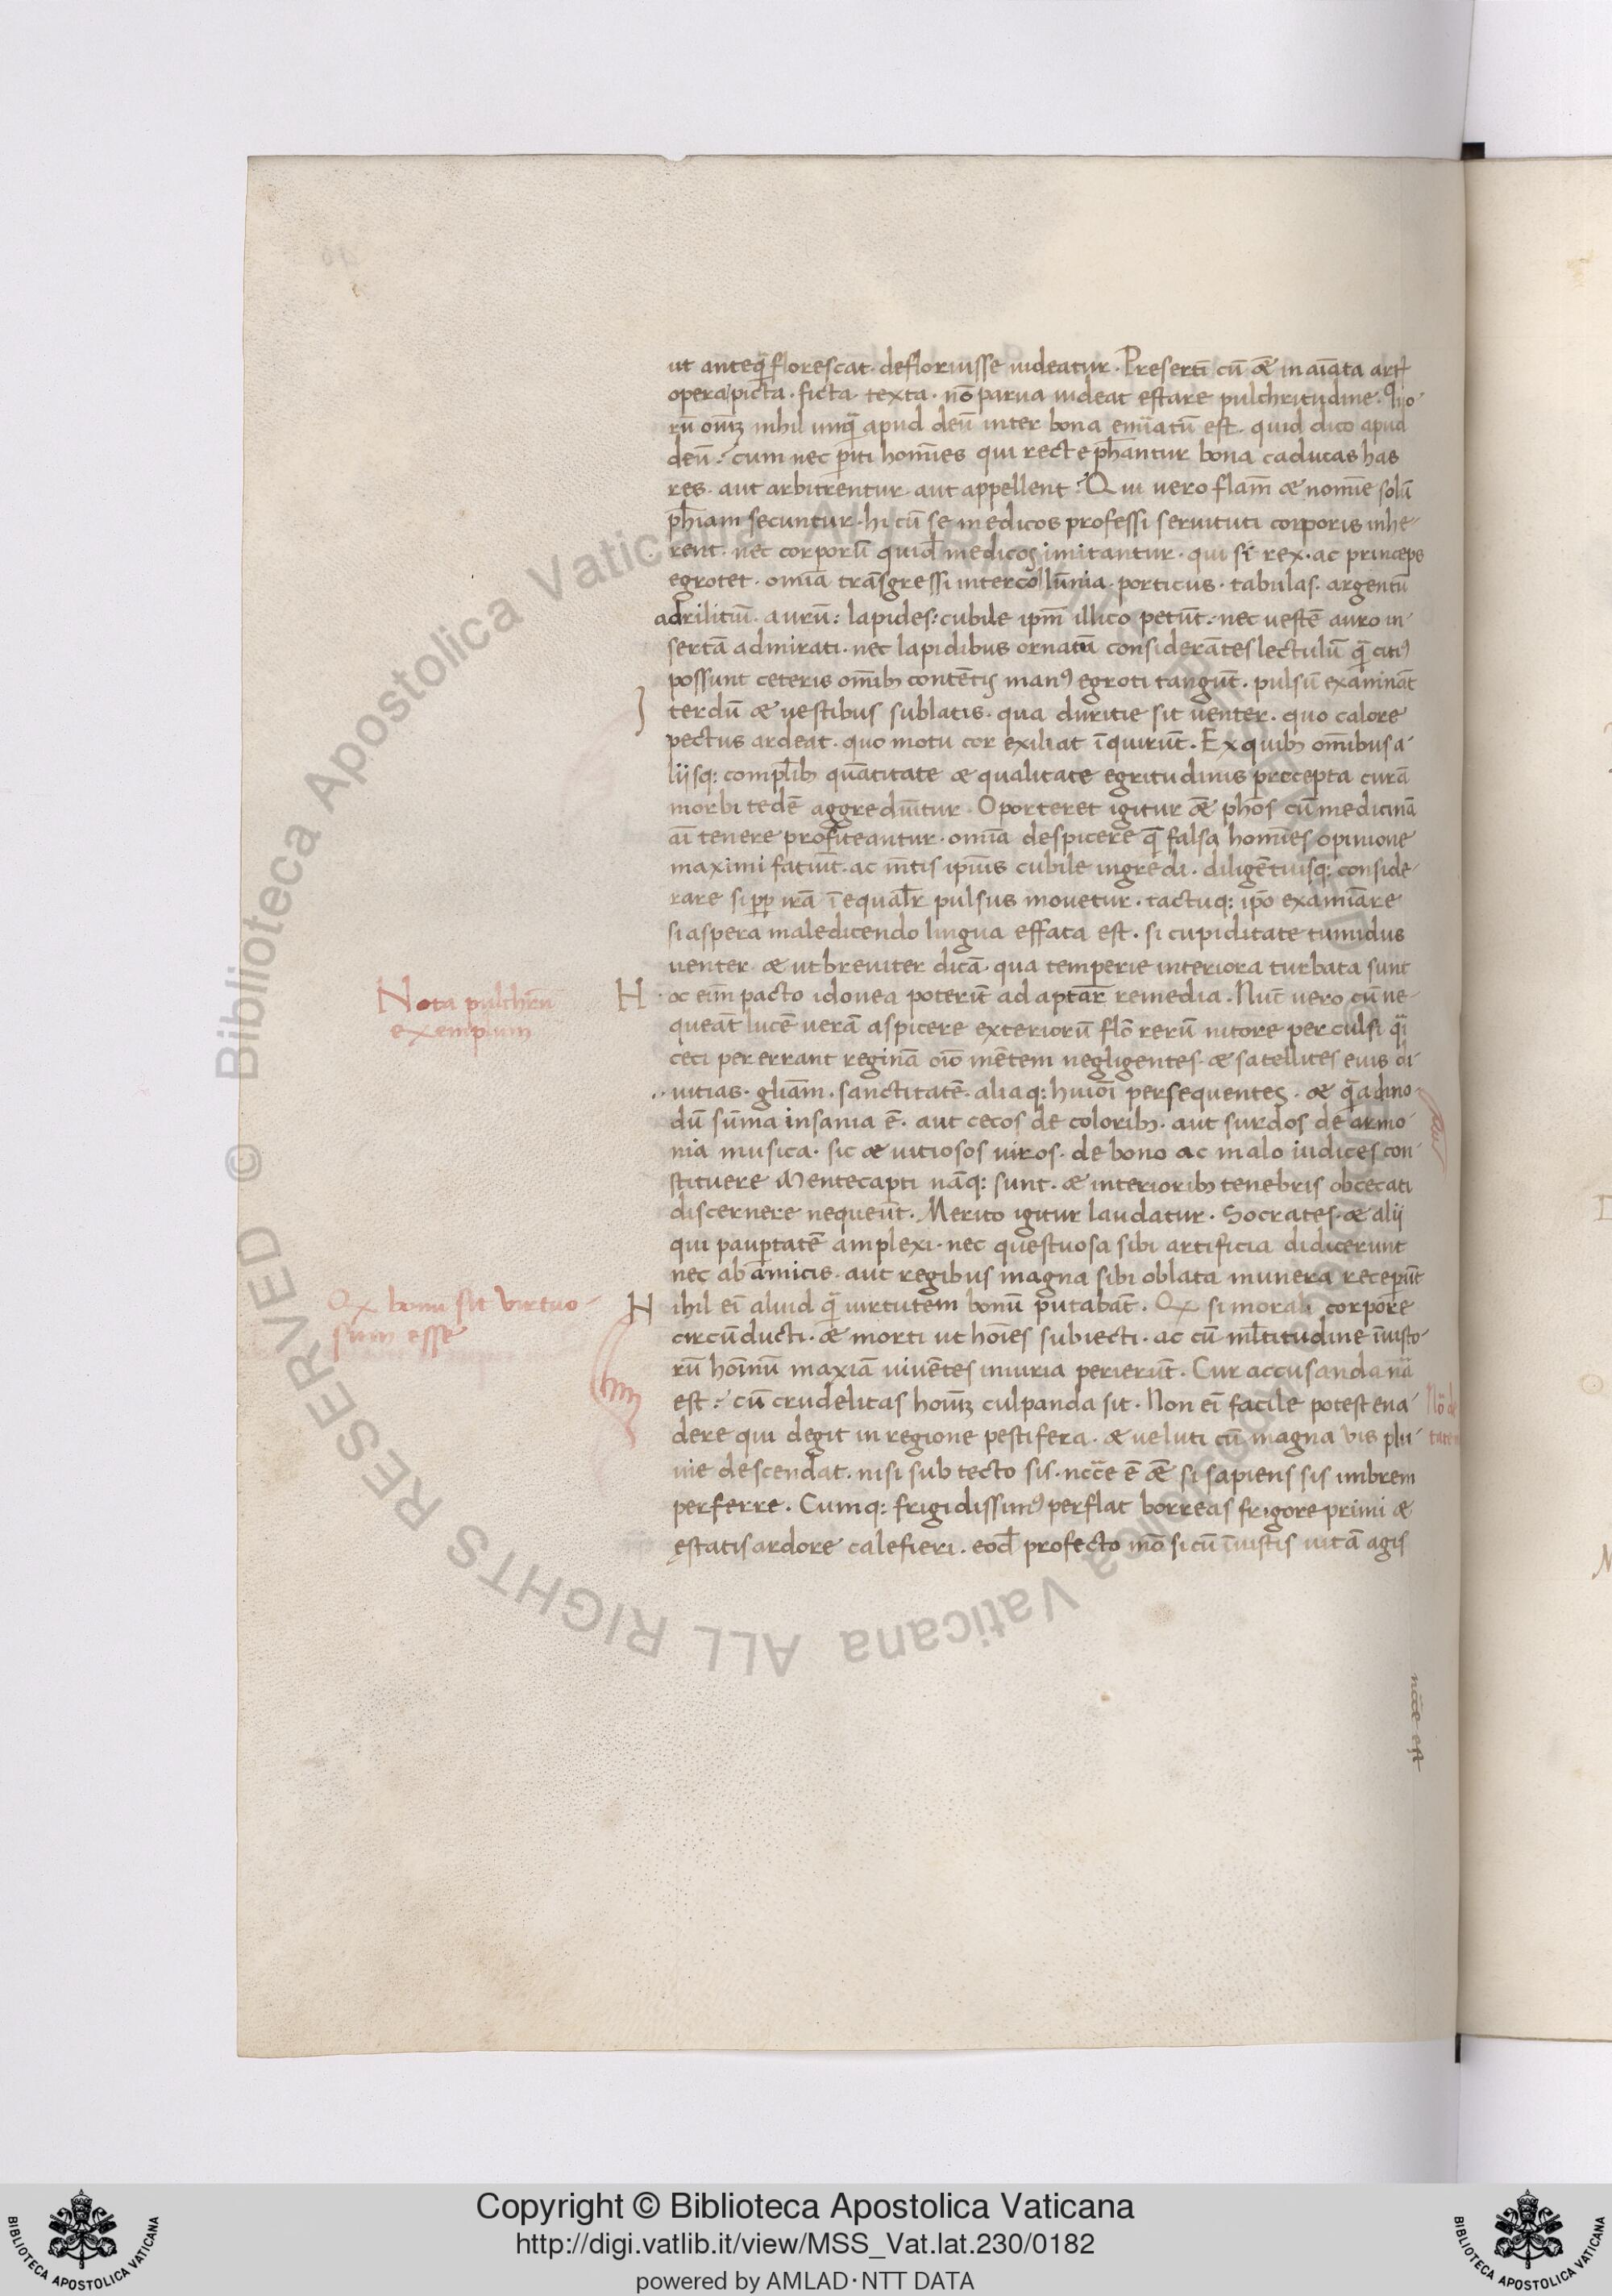 ut anteq̃ florescat. defloruisse uideatur. Presertī cū & in aīata art
opera picta. ficta. texta. nō parua uideat̄ estare pulchritudine. Quo-
rū om̄iꝫ nihil unq̃ apud deū inter bona enūiatū est. quid dico apud
deū? cum nec ꝑiti homīes qui recte ph̄antur bona caducas has
res. aut arbitrentur. aut appellent? Qui uero flam̄ & nomīe solū
ph̄iam secuntur. hi cū se medicos professi seruituti corporis inhe-
rent. nec corporū quid̄ medicos imitantur. qui si rex. ac princeps
egrotet. omīa trāsgressi intercollūnia. porticus. tabulas. argentū
adrilitiū. aurū: lapides: cubile ipm̄ illico petūt. nec uestē auro in-
sertā admirati. nec lapidibus ornatū considerātes lectulū q̃ citiꝰ
possunt ceteris om̄ibꝫ contētis manꝰ egroti tangūt. pulsū examināt
terdū & uestibus sublatis. qua duritie sit uenter. quo calore
pectus ardeat. quo motu cor exiliat īquirūt. Ex quibꝫ om̄ibus a-
lijsq: compl̄ibꝫ quātitate & qualitate egritudinis precepta curā
morbi tedē aggrediūtur. Oporteret igitur & phōs cū medicinā
aī tenere profiteantur. omīa despicere q̄ falsa homīes opinione
maximi fatiūt. ac mētis ipīus cubile ingredi. diligētiusq: conside-
rare si ꝓp irā ī equal̄r pulsus mouetur. tactuq: ip̄o examīare
si aspera maledicendo lingua effata est. si cupiditate tumidus
uenter. & ut breuiter dicā. qua temperie interiora turbata sunt
Hoc eīm pacto idonea poterūt adaptar̄ remedia. Nūt uero cū ne-
queāt lucē uerā aspicere exteriorū flō rerū nitore perculsi q̃i
ceci pererrant reginā oīō mētem negligentes. & satellites eius di-
uitias. gl̄iam. sanctitatē. aliaq: huiōi persequentes. & q̃admo-
dū sūma insania ē. aut cecos de coloribꝫ. aut surdos de armo-
nia musica. sic & uitiosos uiros. de bono ac malo iudices con-
stituere Mentecapti nāq: sunt. & interioribꝫ tenebris obcecati
discernere nequeūt. Merito igitur laudatur. Socrates. & alij
qui pauꝑtatē amplexi. nec questuosa sibi artificia didicerunt
nec ab amicis. aut regibus magna sibi oblata munera receꝑūt
Nihil eī aluid q̃ uirtutem bonū putabāt. Qx si morali corpore
circūducti. & morti ut hoīes subiecti. ac cū ml̄titudine īuisto-
rū hoīnū maxīā uiuētes iniuria perierūt. Cur accusanda nā
est? cū crudelitas hoīuꝫ culpanda sit. Non eī facile potest eua-
dere qui degit in regione pestifera. & ueluti cū magna uis plu-
uie descendat. nisi sub tecto sis. nc̄ce ē & si sapiens sis imbrem
perferre. Cumq: frigidissimꝰ perflat borreas frigore primi &
ęstatis ardore calefieri. eod̄ profecto mō si cū īuistis uitā agis
ncc̄e est
Nota pulchrū
exemplum
Qx bonū sit virtuo-
sum esse
Copyright © Biblioteca Apostolica Vaticana
http://digi.vatlib.it/view/MSS_Vat.lat.230/0182
powered by AMLAD·NTT DATA
BIBLIOTECA APOSTOLICA VATICANA
BIBLIOTECA APOSTOLICA VATICANA
© Biblioteca Apostolica Vaticana ALL RIGHTS RESERVED